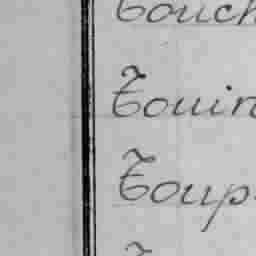 Touch
Touin
Toup